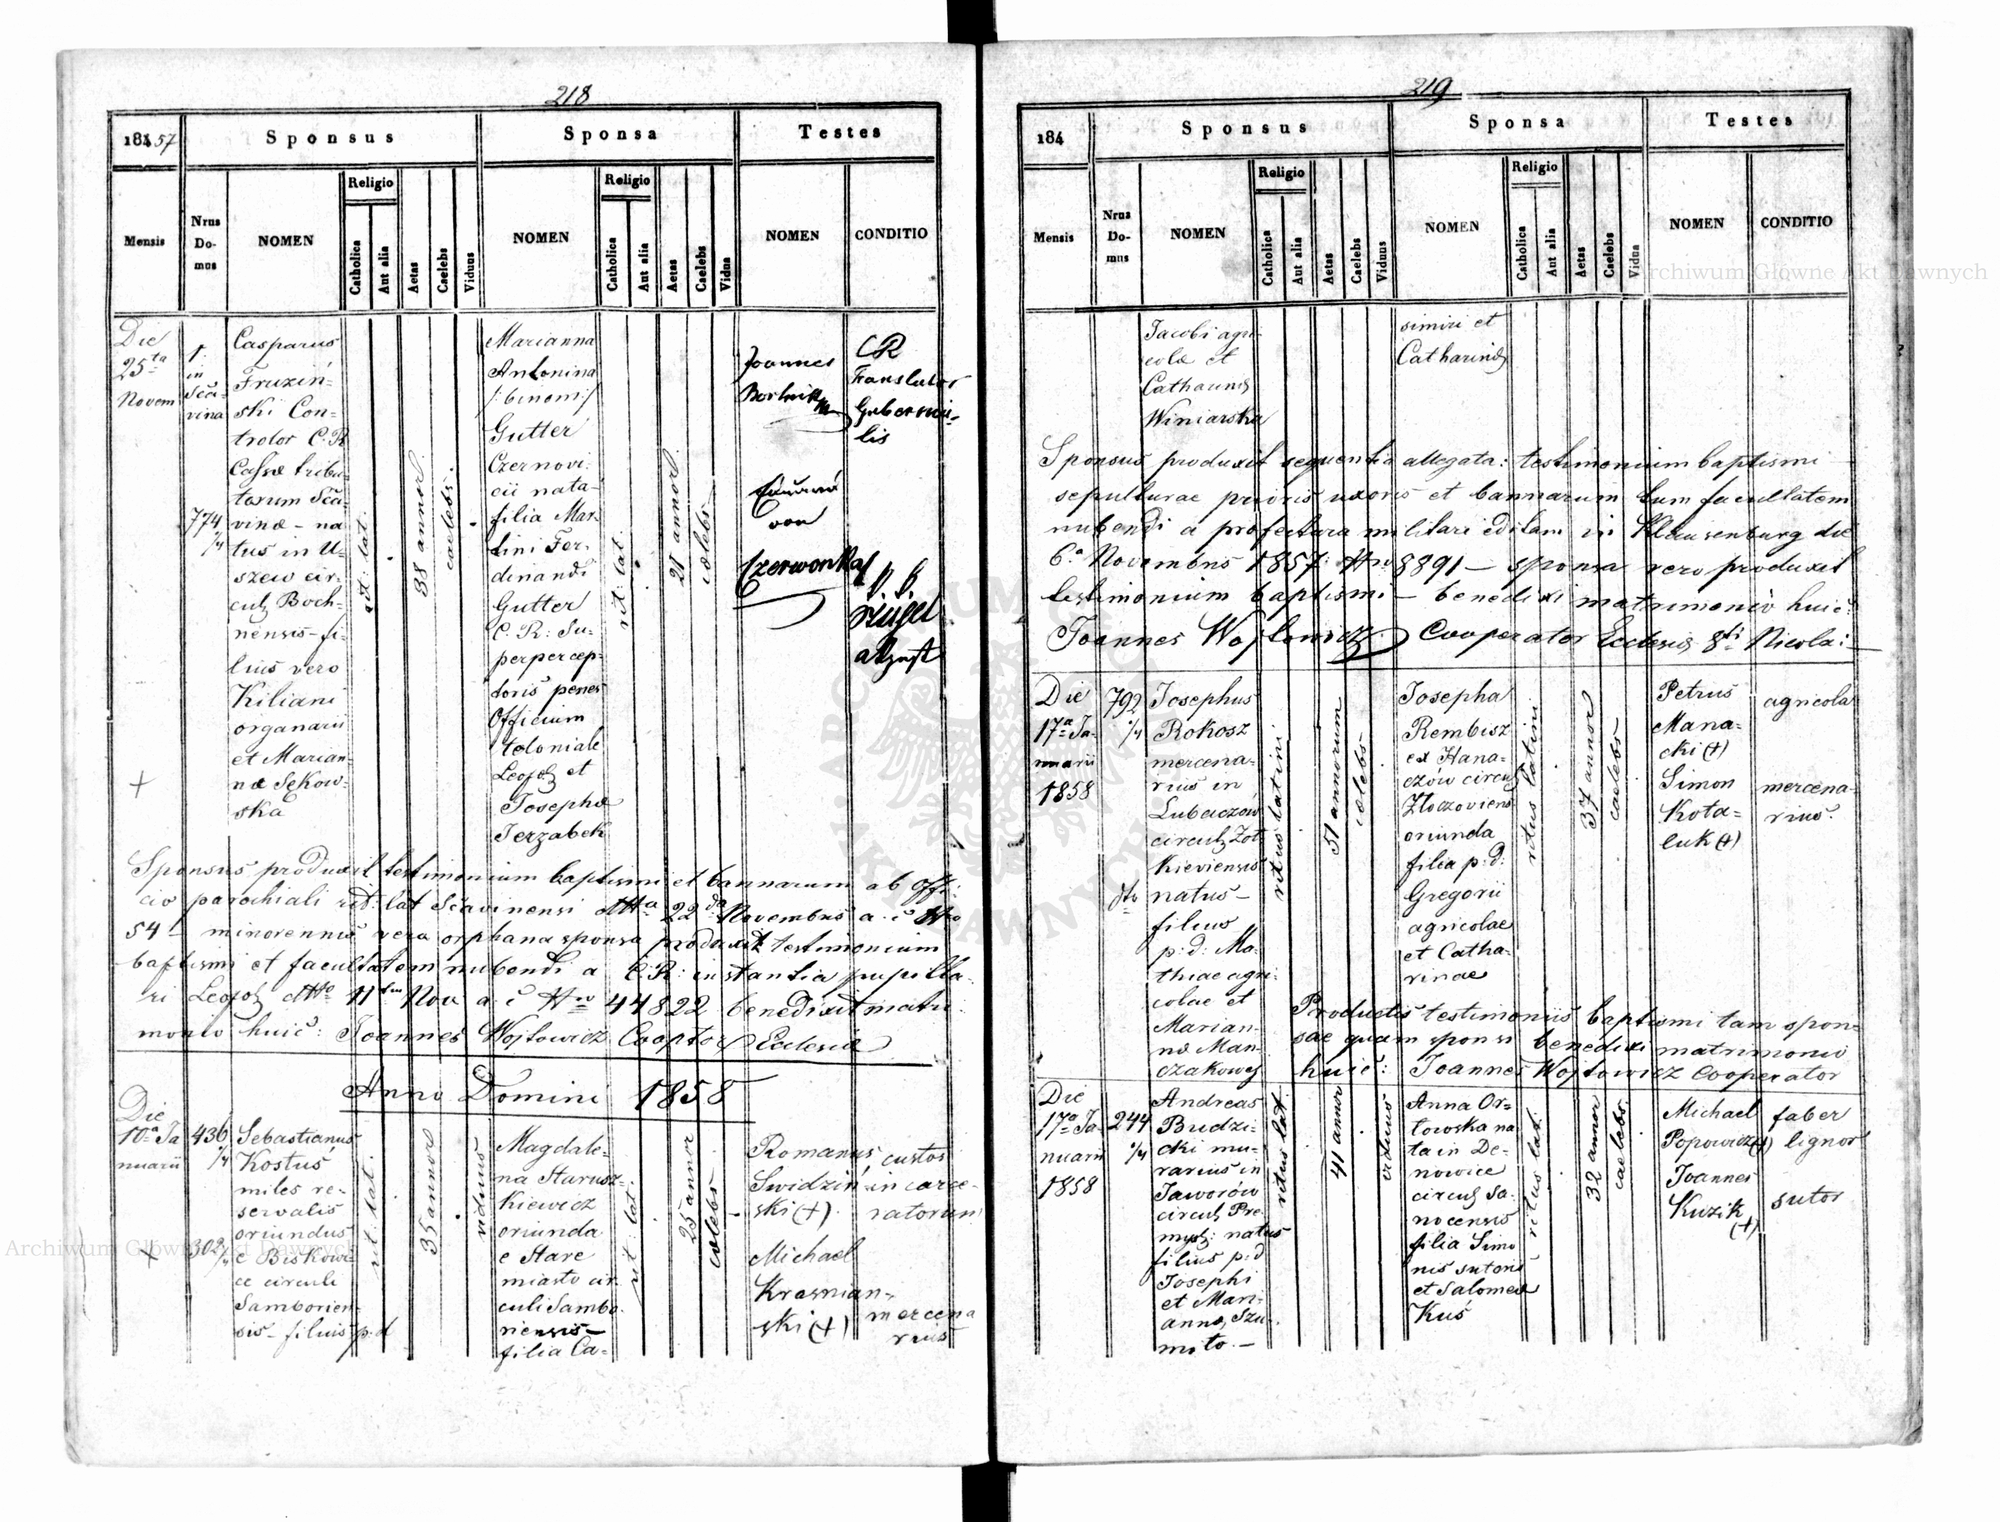 218
18457
Sponsus
Sponsa
Testes
Mensis
Nrus Do- mus
NOMEN
Religio
Catholica
Aut alia
Aetas
Caelebs
Viduus
NOMEN
Religio
Catholica
Aut alia
Aetas
Caelebs
Vidua
NOMEN
CONDITIO
Die
25ta
Novem
1.
in
vina
774
Casparus
Fruziń-
ski Con-
trolor C. R.
Cassae tribu-
torum
vinae - na
tus in U-
szew cir-
culi Boch-
nensis - fi-
lius vero
Kiliani
organarii
et Marian-
nae Sękow-
ska
rit. lat.
38 annor.
caelebs.
Marianna
Antonina
/:binom:/
Gutter
Czernovi-
cii nata
filia Mar-
tini Fer-
dinandi
Gutter
C. R. Su-
perpercep-
toris penes
Officium
Coloniale
Leopol et
Josephae
Jerzabek
rit. lat.
21 annor.
caelebs
Joannes
CR
Translator
Guberni-
lis
von
Czerwonka
Sponsus produxit testimonium baptismi et bannarum ab offi-
cio parochiali rit: lat Scavinensi dtto 22da Novembris a. c Nro
54 - minorennis vera orphana sponsa produxit testimonium
baptismi et facultatem nubendi a C.R: instantia pupilla-
ri Leopol dtto 11 Nov a. c Nro 44822 benedixit matri-
monio huic: Joannes Wojtowicz Cooptor Ecclesiae
Anno Domini 1858
Die
10a Ja
nuarii
436
302
Sebastianus
Kostuś
miles re-
servalis
oriundus
e Biskowi-
ce circuli
Samborien-
sis - filius p. d
rit: lat.
35 annor
viduus
Magdale-
na Starusz-
kiewicz
oriunda
e Stare
miasto cir-
culi Sambo-
riensis -
filia Ca-
rit: lat.
25 annor
caelebs
Romanus
Swidziń-
ski (+)
custos
in carce-
ratorum
Michael
Krasnian-
ski (+)
mercena
rius
219
184
Sponsus
Sponsa
Testes
Mensis
Nrus Do- mus
NOMEN
Religio
Catholica
Aut alia
Aetas
Caelebs
Viduus
NOMEN
Religio
Catholica
Aut alia
Aetas
Caelebs
Vidua
NOMEN
CONDITIO
Jacobi agri-
colae et
Catharinae
Winiarska
simiri et
Catharinae
Sponsus produxit sequentia allegata: testimonium baptismi -
sepulturae prioris uxoris et bannarum tum facultatem
nubendi a profectura militari editam in Klausenburg die
6a Novembris 1857. Nro 8891 - sponsa vero produxit
testimonium baptismi - benedixi matrimonio huic:
Joannes Wojtowicz Cooperator Ecclesiae Sti Nicolai -
Die
17a Ja-
nuarii
1858
792
dto
Josephus
Rokosz
mercena-
rius in
Lubaczów
circuli Zol-
kieviensis
natus -
filius
p: d: Ma-
thiae agri-
colae et
Marian-
nae Man-
czakowej
ritus latini
51 annorum
caelebs
Josepha
Rembisz
ex Hana-
czów circuli
Złoczoviens
oriunda
filia p: d:
Gregorii
agricolae
et Catha-
rinae
ritus latini
37 annor
caelebs
Petrus
Mana-
cki (+)
agricola
Simon
Kota-
luk (+)
mercena-
rius.
Productis testimoniis baptismi tam spon-
sae quam sponsi benedixi matrimonio
huic: Joannes Wojtowicz Cooperator
Die
17a Ja-
nuarii
1858
244
Andreas
Budzi-
cki mu-
rarius in
Jaworów
circuli Pre-
mysl: natus
filius p: d
Josephi
et Mari-
annae Szu-
mito. -
ritus lat
41 annor
viduus
Anna Or-
łowska na
ta in De-
nowice
circuli Sa-
nocensis
filia Simo
nis sutoris
et Salomeae
Kuś
ritus lat.
32 annor
caelebs
Michael
Popowicz (+)
faber
lignor
Joannes
Kuzik
(+)
sutor
Archiwum Główne Akt Dawnych
Archiwum Główne Akt Dawnych
ARCHIWUM GŁÓWNE AKT DAWNYCH